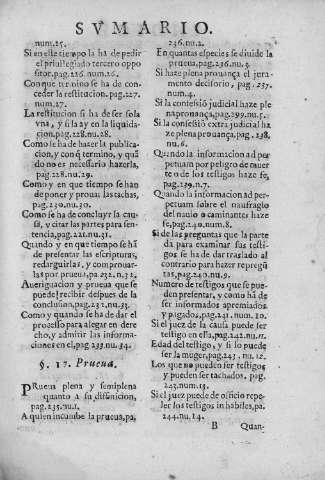 SVMARIO.
num.25.
Si en este tiempo la ha de pedir
el priuilegiado tercero oppo
sitor, pag.226.num.26.
Con que termino se ha de con
ceder la restitucion. pag.227.
num.27.
La restitucion si ha de ser sola
vna, y si la ay en la liquida-
cion, pag.228.nu.28.
Como se ha de hazer la publica-
cion, y con q̃ termino, y quã
do no es necessario hazerla,
pag.228.nu.29.
Como y en que tiempo se han
de poner y prouar las tachas,
pag.230.nu.30.
Como se ha de concluyr la cau-
sa, y citar las partes para sen-
tencia, pag.231.nu.31.
Quando y en que tiempo se hã
de presentar las escripturas,
redarguirlas, y comprouar-
las por prueua, pa.232.n.32.
Aueriguacion y prueua que se
puede recibir despues de la
conclusion, pag.232.nu.33.
Como y quando se ha de dar el
processo para alegar en dere
cho, y admitir las informa-
ciones en el, pag.233.nu.34.
§. 17. Prueua.
PRueua plena y semiplena
quanto a su difinicion,
pag.235.nu.1.
A quien incumbe la prueua, pa.
236.nu.2.
En quantas especies se diuide la
prueua, pag.236.nu.3.
Si haze plena prouança el jura-
mento decisorio, pag.237.
num.4.
Si la confesiõ judicial haze ple
na prouança, pag.299.nu.5.
Si la confessiõ extra judicial ha
ze plena prouança, pag.238.
nu.6.
Quando la informacion ad per
petuam por peligro de muer
te o de los testigos haze fe,
pag.239.n.7.
Quando la informacion ad per-
petuam sobre el naufragio
del nauio o caminantes haze
fe, pag.240.num.8.
Si de las preguntas que la parte
da para examinar sus testi-
gos se ha de dar traslado al
contrario para hazer repregũ
tas, pag.240.nu.9.
Numero de testigos que se pue-
den presentar, y como hã de
ser informados apremiados
y pagados, pag.241.num.10.
Si el juez de la causa puede ser
testigo en ella, pag.242.nu.11.
Edad del testigo, y si lo puede
ser la muger, pag.243. nu.12.
Los que no pueden ser testigos
y pueden ser tachados, pag.
243.num.13.
Si el juez puede de oficio repe-
ler los testigos inhabiles, pa.
244.nu.14.
B Quan-